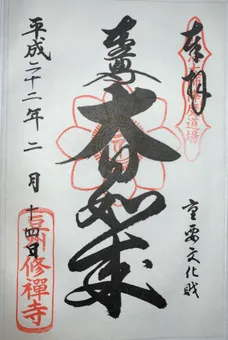 奉拝
重要文化財
本尊
大日如来
平成二十二年二月十四日
豆州修禪寺